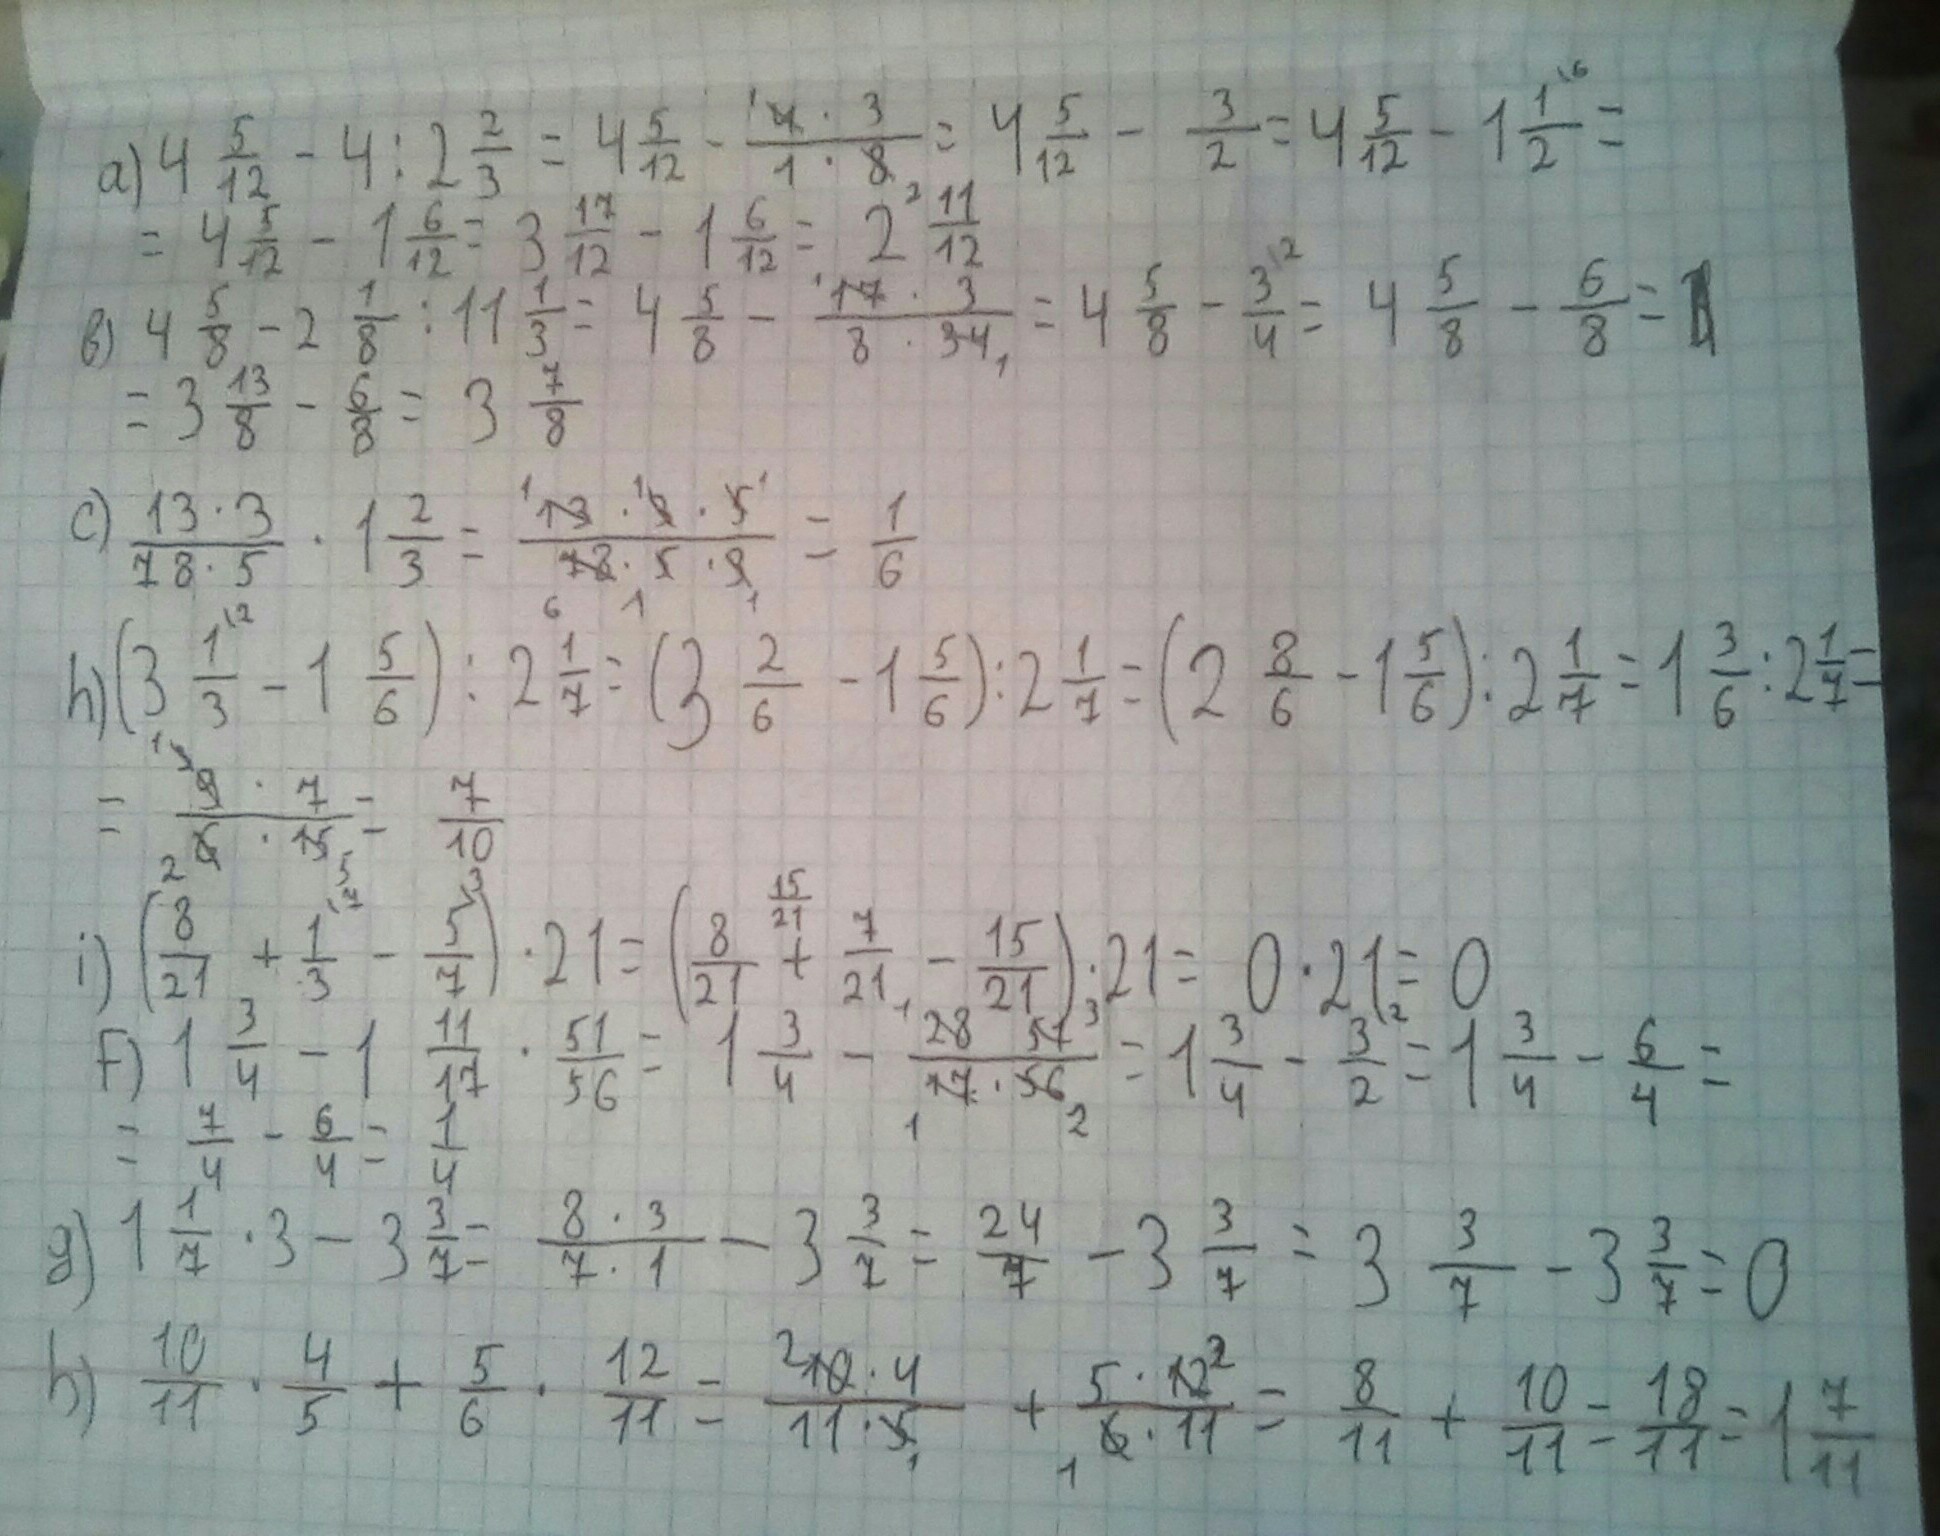 a) 4 5/12 - 4 : 2 2/3 = 4 5/12 - (4 · 3)/(1 · 8) = 4 5/12 - 3/2 = 4 5/12 - 1 1/2 =
= 4 5/12 - 1 6/12 = 3 17/12 - 1 6/12 = 2 11/12
b) 4 5/8 - 2 1/8 : 11 1/3 = 4 5/8 - (17 · 3)/(8 · 34) = 4 5/8 - 3/4 = 4 5/8 - 6/8 =
= 3 13/8 - 6/8 = 3 7/8
c) (13 · 3)/(78 · 5) · 1 2/3 = (13 · 3 · 5)/(78 · 5 · 3) = 1/6
h) (3 1/3 - 1 5/6) : 2 1/7 = (3 2/6 - 1 5/6) : 2 1/7 = (2 8/6 - 1 5/6) : 2 1/7 = 1 3/6 : 2 1/7 =
= (9 · 7)/(6 · 15) = 7/10
i) (8/21 + 1/3 - 5/7) · 21 = (8/21 + 7/21 - 15/21) · 21 = 0 · 21 = 0
f) 1 3/4 - 1 11/17 · 51/56 = 1 3/4 - (28 · 51)/(17 · 56) = 1 3/4 - 3/2 = 1 3/4 - 6/4 =
= 7/4 - 6/4 = 1/4
g) 1 1/7 · 3 - 3 3/7 = (8 · 3)/(7 · 1) - 3 3/7 = 24/7 - 3 3/7 = 3 3/7 - 3 3/7 = 0
h) 10/11 · 4/5 + 5/6 · 12/11 = (10 · 4)/(11 · 5) + (5 · 12)/(6 · 11) = 8/11 + 10/11 = 18/11 = 1 7/11